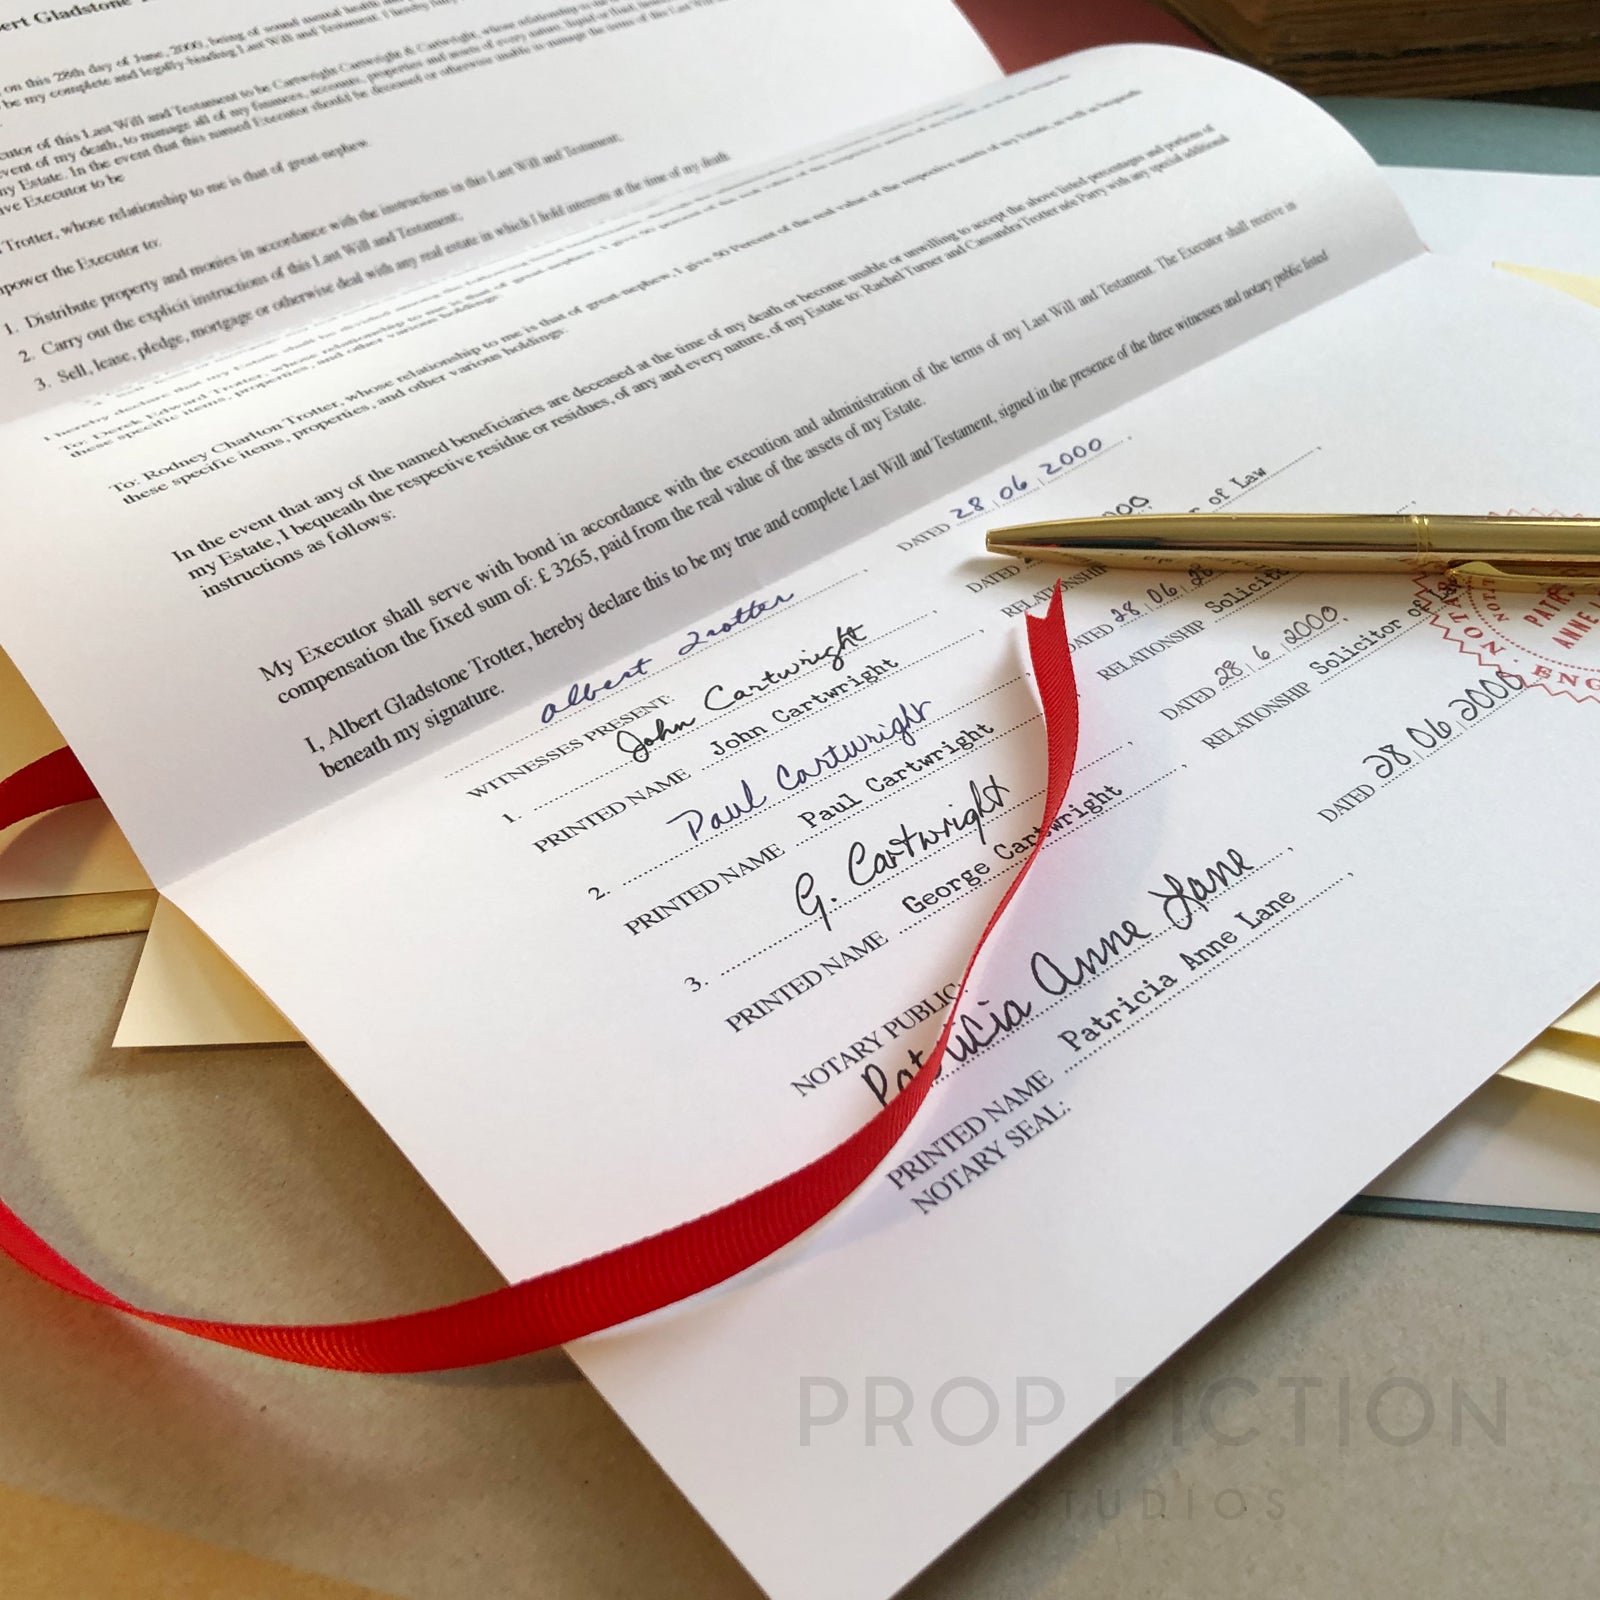 ert Gladstone
on this 28th day of June, 2000, being of sound mental health
be my complete and legally binding Last Will and Testament. I hereby
cutor of this Last Will and Testament to be Cartwright Cartwright & Cartwright, whose relationship to me
event of my death, to manage all of my finances, accounts, properties and assets of every nature,
my Estate. In the event that this named Executor should be deceased or otherwise unable to manage the terms of this Last Will
ive Executor to be
Trotter, whose relationship to me is that of great-nephew.
mpower the Executor to:
1. Distribute property and monies in accordance with the instructions in this Last Will and Testament;
2. Carry out the explicit instructions of this Last Will and Testament;
3. Sell, lease, pledge, mortgage or otherwise deal with any real estate in which I hold interests at the time of my death.
I hereby declare that my Estate shall be divided among the following
To: Derek Edward Trotter, whose relationship to me is that of great-nephew, I give 50 percent of the real value of the respective assets of my Estate, as well as
these specific items, properties, and other various holdings:
To: Rodney Charlton Trotter, whose relationship to me is that of great-nephew, I give 50 Percent of the real value of the respective assets of my Estate, as well as bequeath
these specific items, properties, and other various holdings:
In the event that any of the named beneficiaries are deceased at the time of my death or become unable or unwilling to accept the above listed percentages and portions of
my Estate, I bequeath the respective residue or residues, of any and every nature, of my Estate to: Rachel Turner and Cassandra Trotter née Parry with any special additional
instructions as follows:
My Executor shall serve with bond in accordance with the execution and administration of the terms of my Last Will and Testament. The Executor shall receive in
compensation the fixed sum of: £ 3265, paid from the real value of the assets of my Estate.
I, Albert Gladstone Trotter, hereby declare this to be my true and complete Last Will and Testament, signed in the presence of the three witnesses and notary public listed
beneath my signature.
Albert Trotter, DATED 28|06|2000,
WITNESSES PRESENT:
1. John Cartwright, DATED 2 000
PRINTED NAME John Cartwright, RELATIONSHIP r of Law,
2. Paul Cartwright, DATED 28|06|20
PRINTED NAME Paul Cartwright, RELATIONSHIP Solicit
3. G. Cartwright, DATED 28|6|2000,
PRINTED NAME George Cartwright, RELATIONSHIP Solicitor of La
NOTARY PUBLIC:
Patricia Anne Lane, DATED 28|06|2000
PRINTED NAME Patricia Anne Lane,
NOTARY SEAL:
NOTA
PATR
ANNE L
ENG
PROP FICTION
STUDIOS